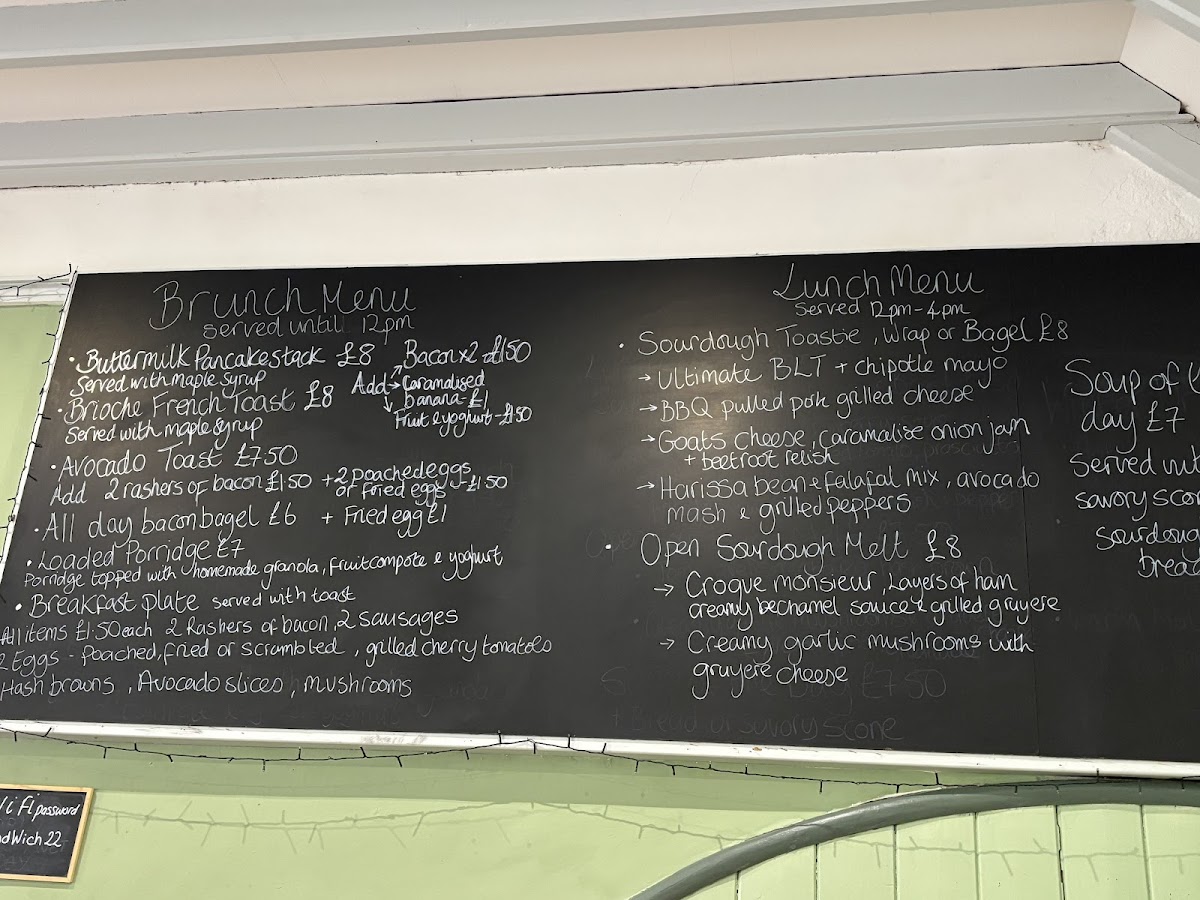 Brunch Menu
served until 12pm
• Buttermilk Pancakestack £8
Served with maple syrup
• Brioche French Toast £8
Served with maple syrup
Add → Bacon x2 - £1.50
→ Caramalised
banana - £1
Fruit & yoghurt - £1.50
• Avocado Toast £7.50
Add 2 rashers of bacon £1.50 + 2 poached eggs
or fried eggs - £1.50
• All day bacon bagel £6 + Fried egg £1
• Loaded Porridge £7
Porridge topped with homemade granola, fruit compote & yoghurt
• Breakfast plate served with toast
All items £1.50 each 2 Rashers of bacon, 2 sausages
2 Eggs - Poached, fried or scrambled, grilled cherry tomatoes
Hash browns, Avocado slices, mushrooms
Lunch Menu
Served 12pm - 4pm
• Sourdough Toastie, Wrap or Bagel £8
→ Ultimate BLT + chipotle mayo
→ BBQ pulled pork grilled cheese
→ Goats cheese, caramalise onion jam
+ beetroot relish
→ Harissa bean & falafal mix, avocado
mash & grilled peppers
• Open Sourdough Melt £8
→ Croque monsieur, Layers of ham
creamy bechamel sauce & grilled gruyere
→ Creamy garlic mushrooms with
gruyere cheese
£7.50
+ Bread or savory scone
Soup of
day £7
served
savory
sourdoug
brea
ifi password
dWich 22